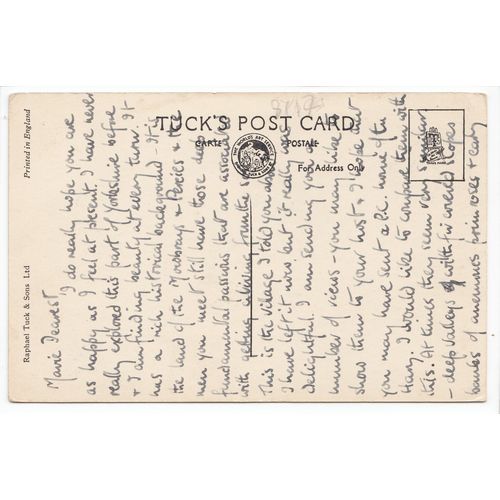 TUCK'S POST CARD
CARTE POSTALE
For Address Only
Printed in England
Raphael Tuck & Sons Ltd
Marie Dearest
I do really hope you are
as happy as I feel at present. I have never
really explored this part of Yorkshire before
& I am finding beauty at every turn. It
has a rich historical background - it is
the land of the Mowbrays & Percies & the
men you meet still have those deep
fundamental passions that are associated
with getting living from the
This is the village I told you about
I have left it now but it really is
delightful. I am sending you a
number of views - you may like to
show them to your host & I hope that
you may have sent a P.C. home of the
Harz. I would like to compare them with
this. At times they seem very similar
- deep valleys with fir covered slopes
banks of anemones primroses & early